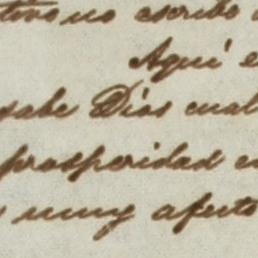 tivo no escribo
Aquí e
sabe Dios cual
prosperidad e
muy afecto